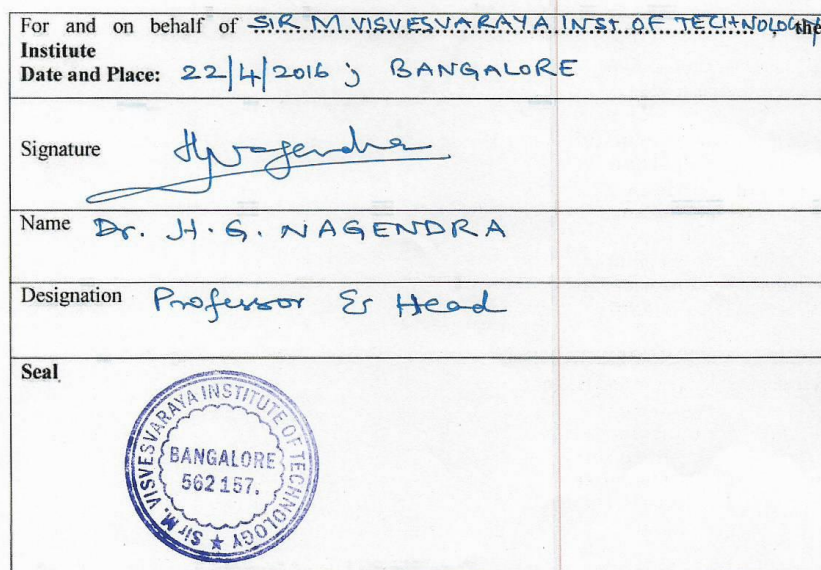 For and on behalf of SIR M. VISVESVARAYA INST OF TECHNOLOGY, the
Institute
Date and Place: 22/4/2016 ; BANGALORE
Signature HGNagendra
Name Dr. H. G. NAGENDRA
Designation Professor & Head
Seal
Sir M. VISVESVARAYA INSTITUTE OF TECHNOLOGY ★
BANGALORE
562 157.